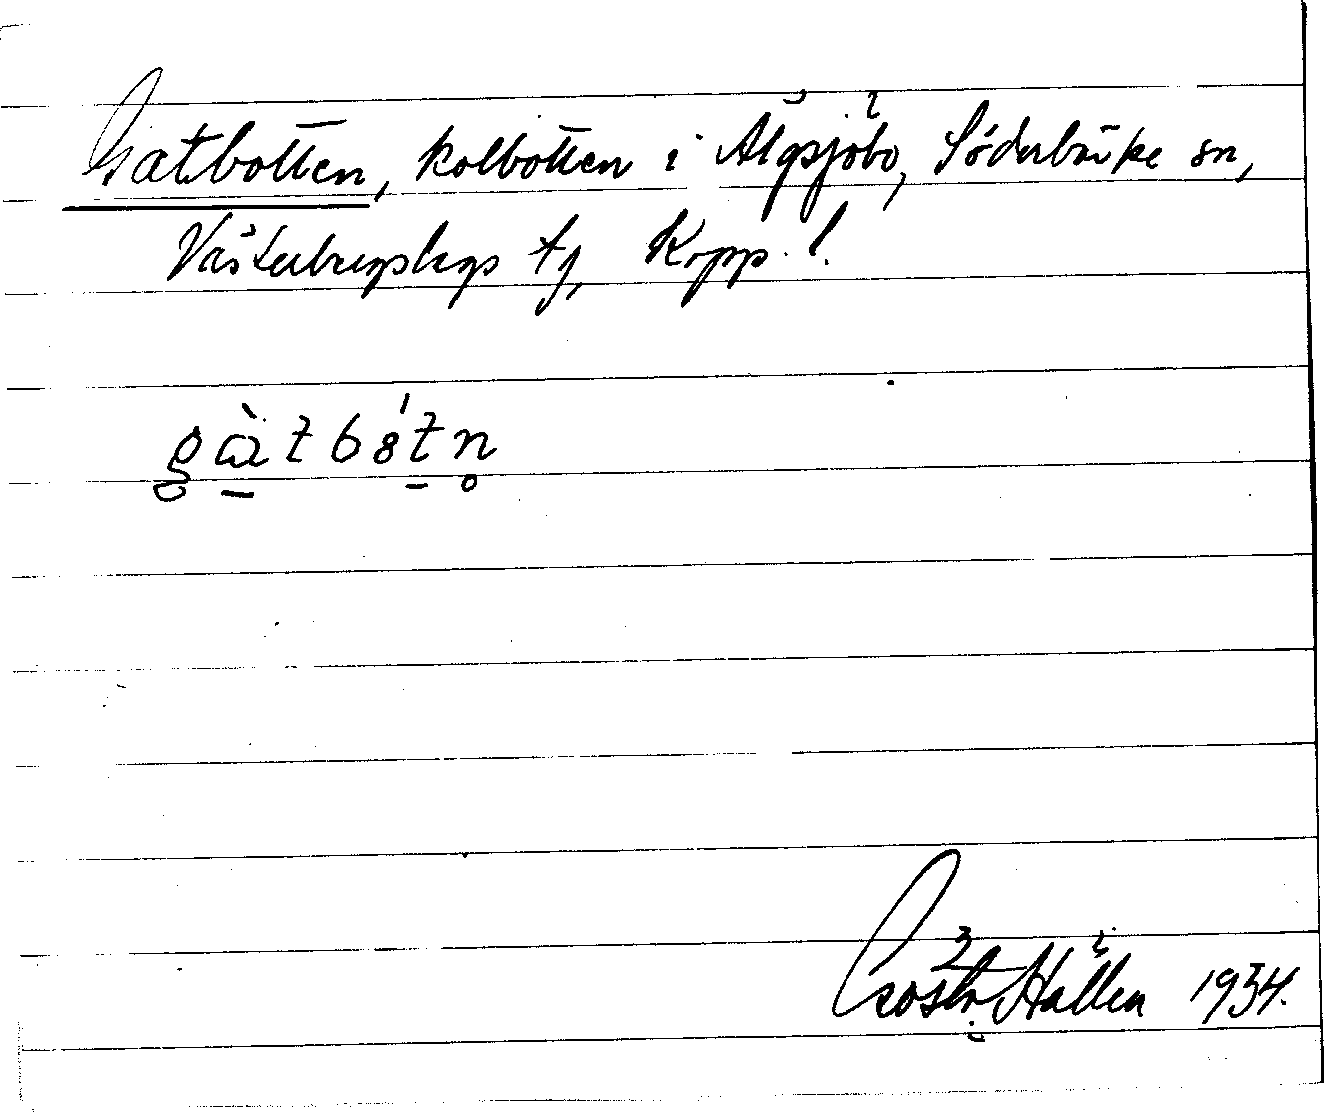 Gatbotten, kolbotten i Älgsjöbo, Söderbärke sn,
Västerbergslags tg, Kopp. l.
gàtbǿtn̥
Gösta Hallén 1934.